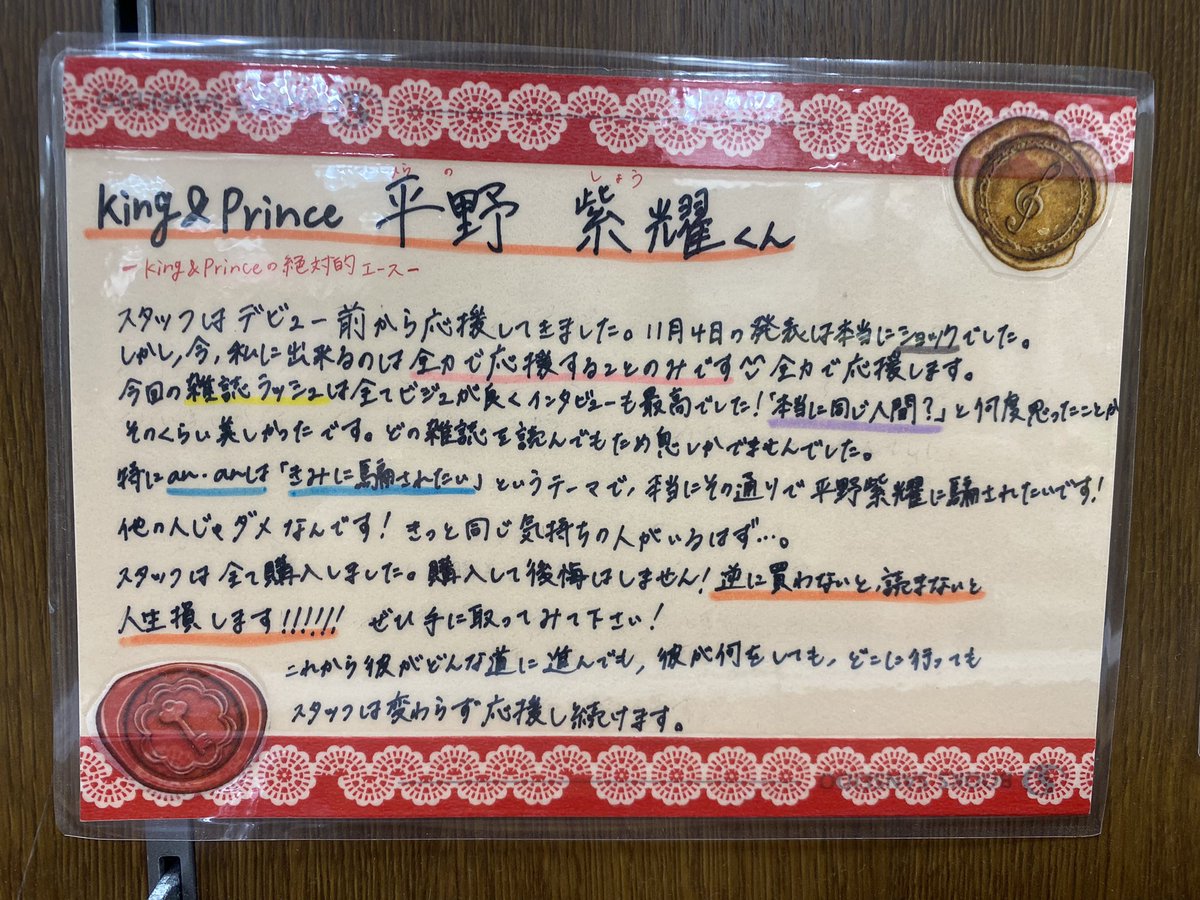 ひらの しょう
King&Prince 平野 紫耀くん
-King&Princeの絶対的エース-
スタッフはデビュー前から応援してきました。11月4日の発表は本当にショックでした。
しかし、今、私に出来るのは全力で応援することのみです 全力で応援します。
今回の雑誌ラッシュは全てビジュが良くインタビューも最高でした!「本当に同じ人間?」と何度思ったことか
そのくらい美しかったです。どの雑誌を読んでもため息しかでませんでした。
特にan・anは「きみに騙されたい」というテーマで、本当にその通りで平野紫耀に騙されたいです!
他の人じゃダメなんです!きっと同じ気持ちの人がいるはず…。
スタッフは全て購入しました。購入して後悔はしません!逆に買わないと、読まないと
人生損します!!!!!! ぜひ手に取ってみて下さい!
これから彼がどんな道に進んでも、彼が何をしても、どこに行っても
スタッフは変わらず応援し続けます。